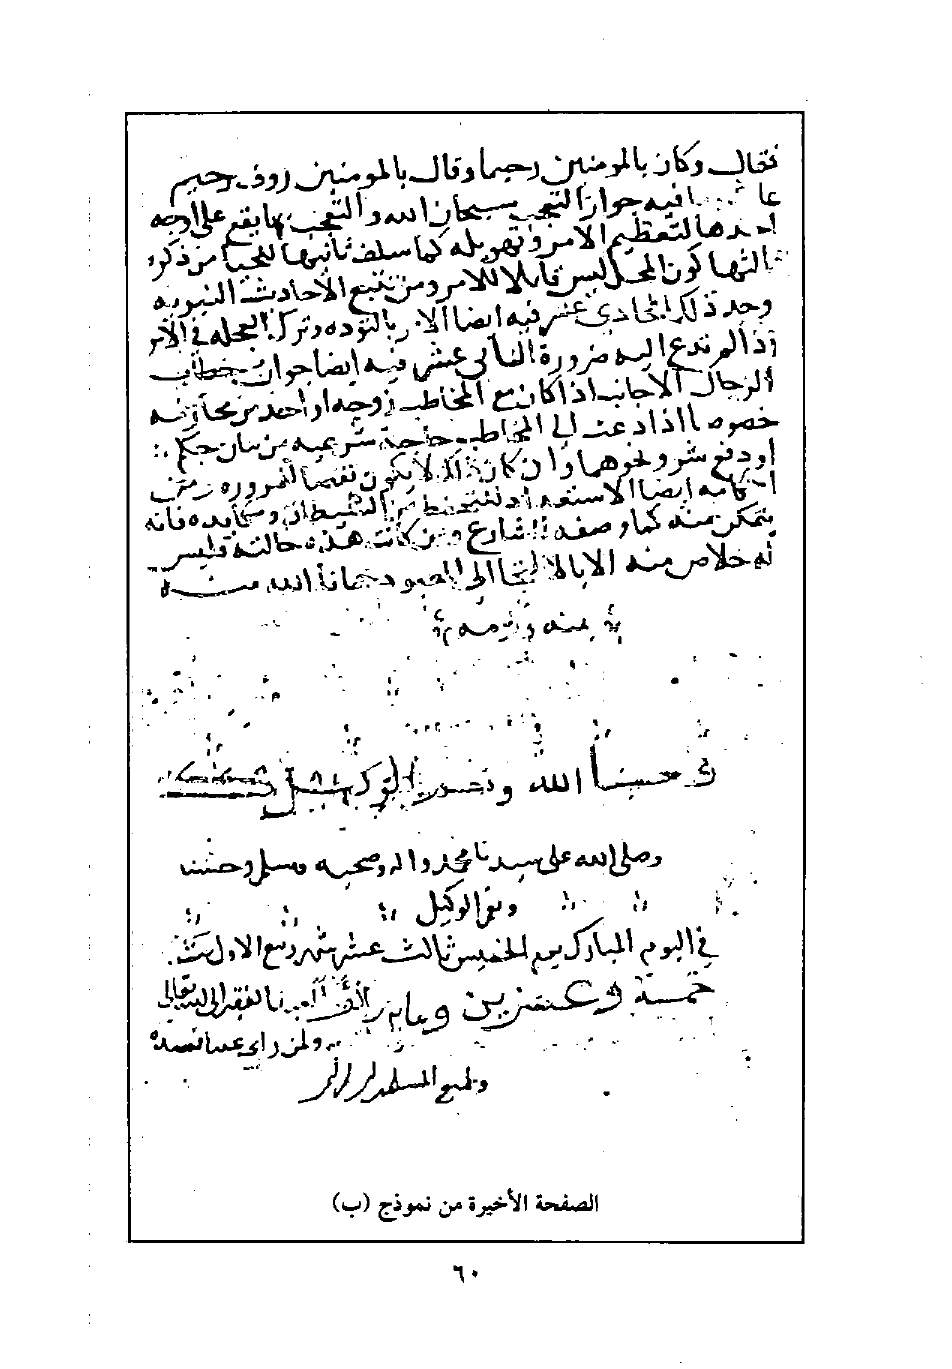 فقال وكان بالمومنين رحيما وقال بالمومنين روف رحيم
فيه جواز التعجب بسبحان الله والتعجب بها يقع على اوجه
احدها لتعظيم الامر وتهويله كما سلف ثانيها للحيا من ذكره
ثالثها كون المحل ليس قابلا للامر ومن تتبع الاحاديث النبويه
وجد ذلك الحادي عشر فيه ايضا الامر بالتوده وترك العجله في الامر
اذا لم تدع اليه ضرورة الثاني عشر فيه ايضا جواز خطاب
الرجال الاجانب اذا كان مع المخاطب زوجه او احد من محارمه
خصوصا اذا دعت الى المخاطب حاجة شرعيه من بيان حكم
او دفع شر ونحوهما وان كان ذلك لا يكون نقصا لمروره
ايضا الاستعداد للتحفظ من الشيطان ومكايده فانه
يتمكن منه كما وصفه الشارع ومن كانت هذه حالته فليس
له خلاص منه الا بالالتجا الى المعبود حمانا الله منه
بمنه وكرمه
حسبنا الله ونعم الوكيل
وصلى الله على سيدنا محمد واله وصحبه وسلم وحسبنا
ونعم الوكيل
في اليوم المبارك يوم الخميس ثالث عشر شهر ربيع الاول سنة
خمسة وعشرين الفقير الى الله تعالى
ولمن راى عيبا فسده
ولجميع المسلمين
الصفحة الأخيرة من نموذج (ب)
٦٠